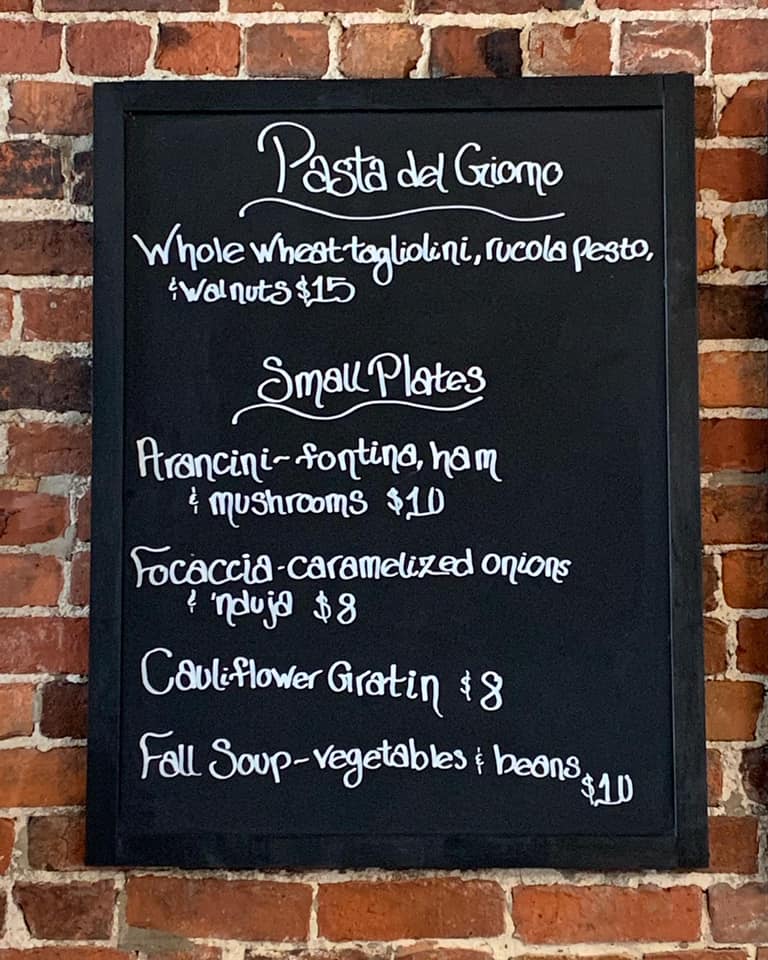 Pasta del Giorno
Whole wheat tagliolini, rucola pesto,
& walnuts $15
Small Plates
Arancini - fontina, ham
& mushrooms $10
Focaccia - caramelized onions
& 'nduja $8
Cauliflower Gratin $8
Fall Soup - vegetables & beans
$10